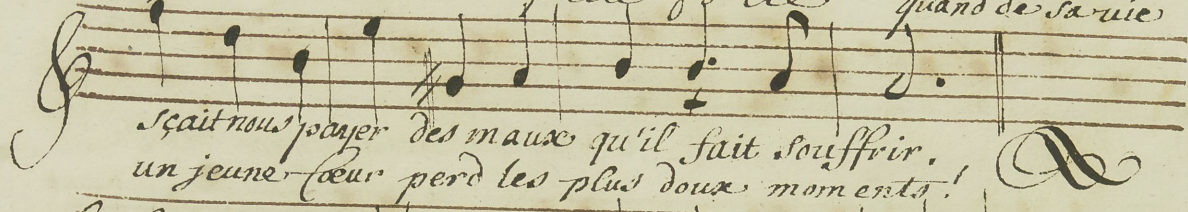 quand de sa vie
sçait nous payer des maux qu'il fait souffrir.
un jeune Cœur perd les plus doux moments!